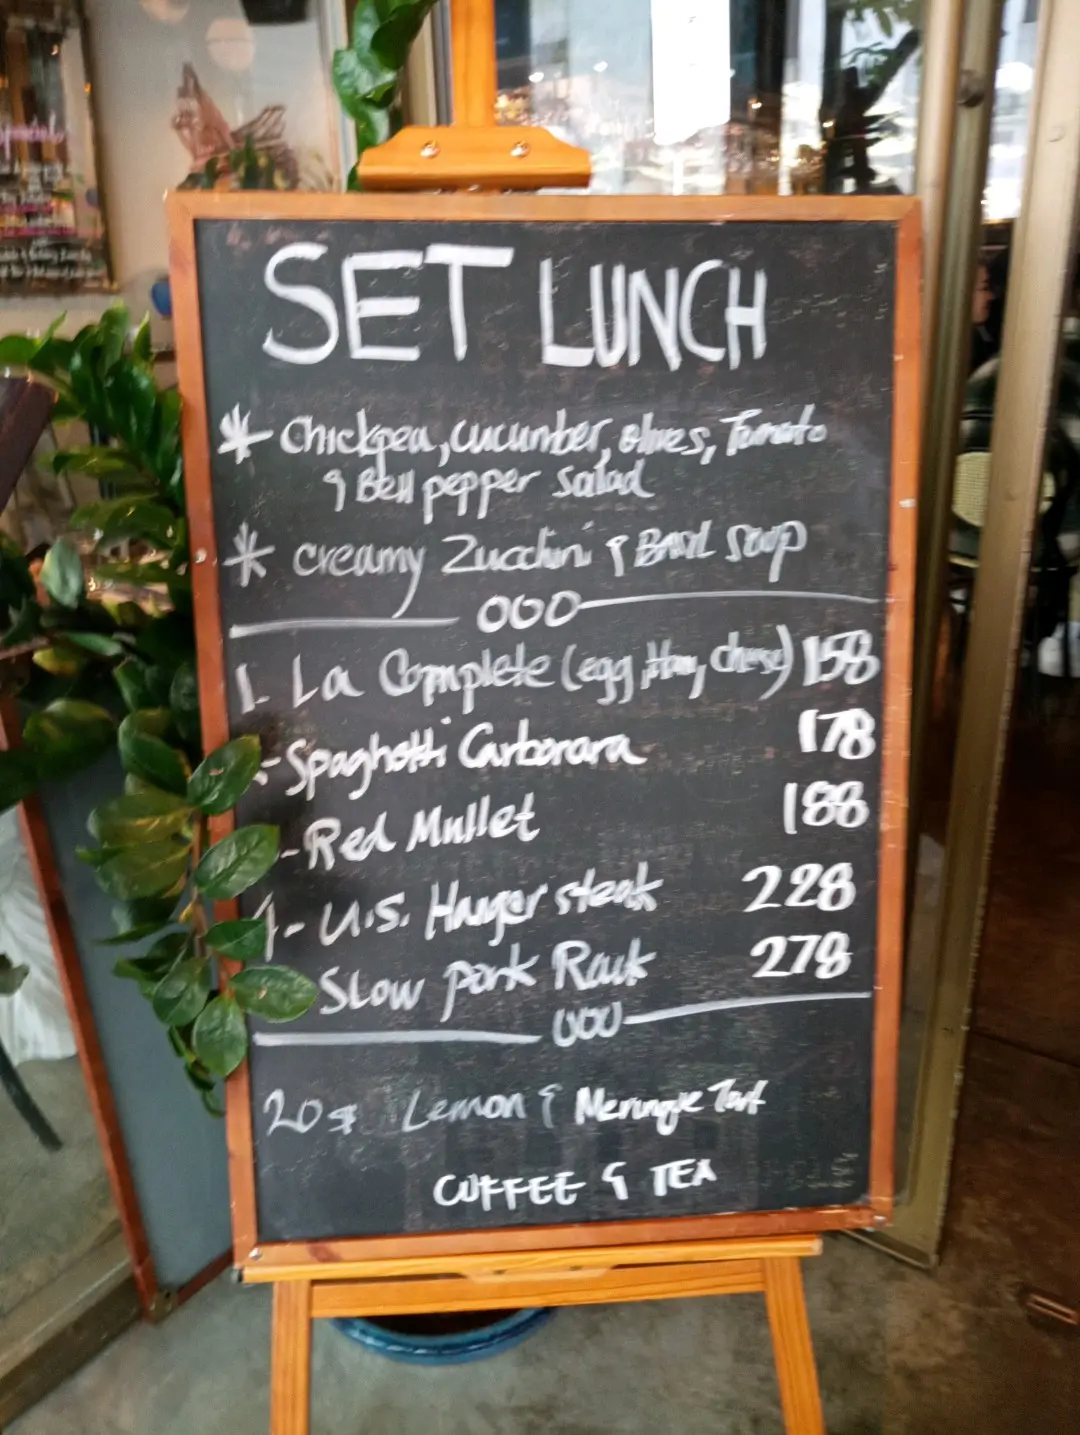 SET LUNCH
* Chickpea, cucumber, olives, Tomato
& Bell pepper salad
* creamy Zucchini & Basil soup
000
1. La Complete (egg, Ham, cheese) 158
- Spaghetti Carbonara 178
- Red Mullet 188
- U.S. Hanger steak 228
Slow pork Rack 278
000
20$ Lemon & Meringue Tart
COFFEE & TEA